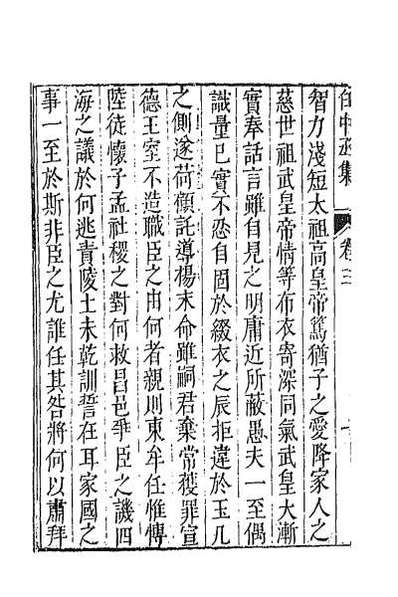 任中丞集 卷三
智力淺短太祖高皇帝篤猶子之愛降家人之
慈世祖武皇帝情等布衣寄深同氣武皇大漸
實奉話言雖自見之明庸近所蔽愚夫一至偶
識量已實不忍自固於綴衣之辰拒違於玉几
之側遂荷顧託導揚末命雖嗣君棄常獲罪宣
德王室不造職臣之由何者親則東牟任惟博
陸徒懷子孟社稷之對何救昌邑爭臣之譏四
海之議於何逃責陵土未乾訓誓在耳家國之
事一至於斯非臣之尤誰任其咎將何以肅拜